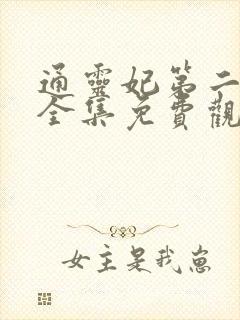 通靈妃第二
全集免費觀
女主是我崽